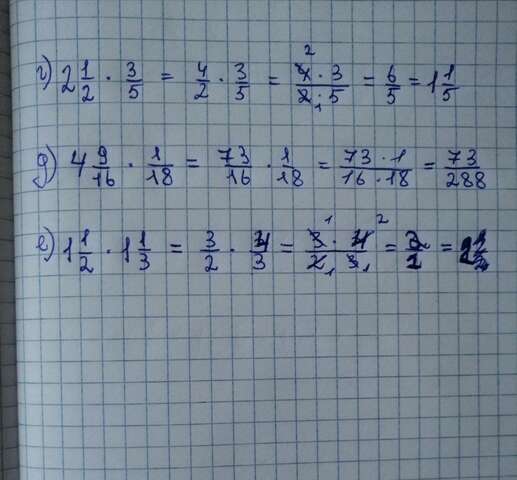 г) 2 1/2 · 3/5 = 4/2 · 3/5 = 4 · 3 / 2 · 5 = 6/5 = 1 1/5
д) 4 9/16 · 1/18 = 73/16 · 1/18 = 73 · 1 / 16 · 18 = 73/288
е) 1 1/2 · 1 1/3 = 3/2 · 4/3 = 3 · 4 / 2 · 3 =